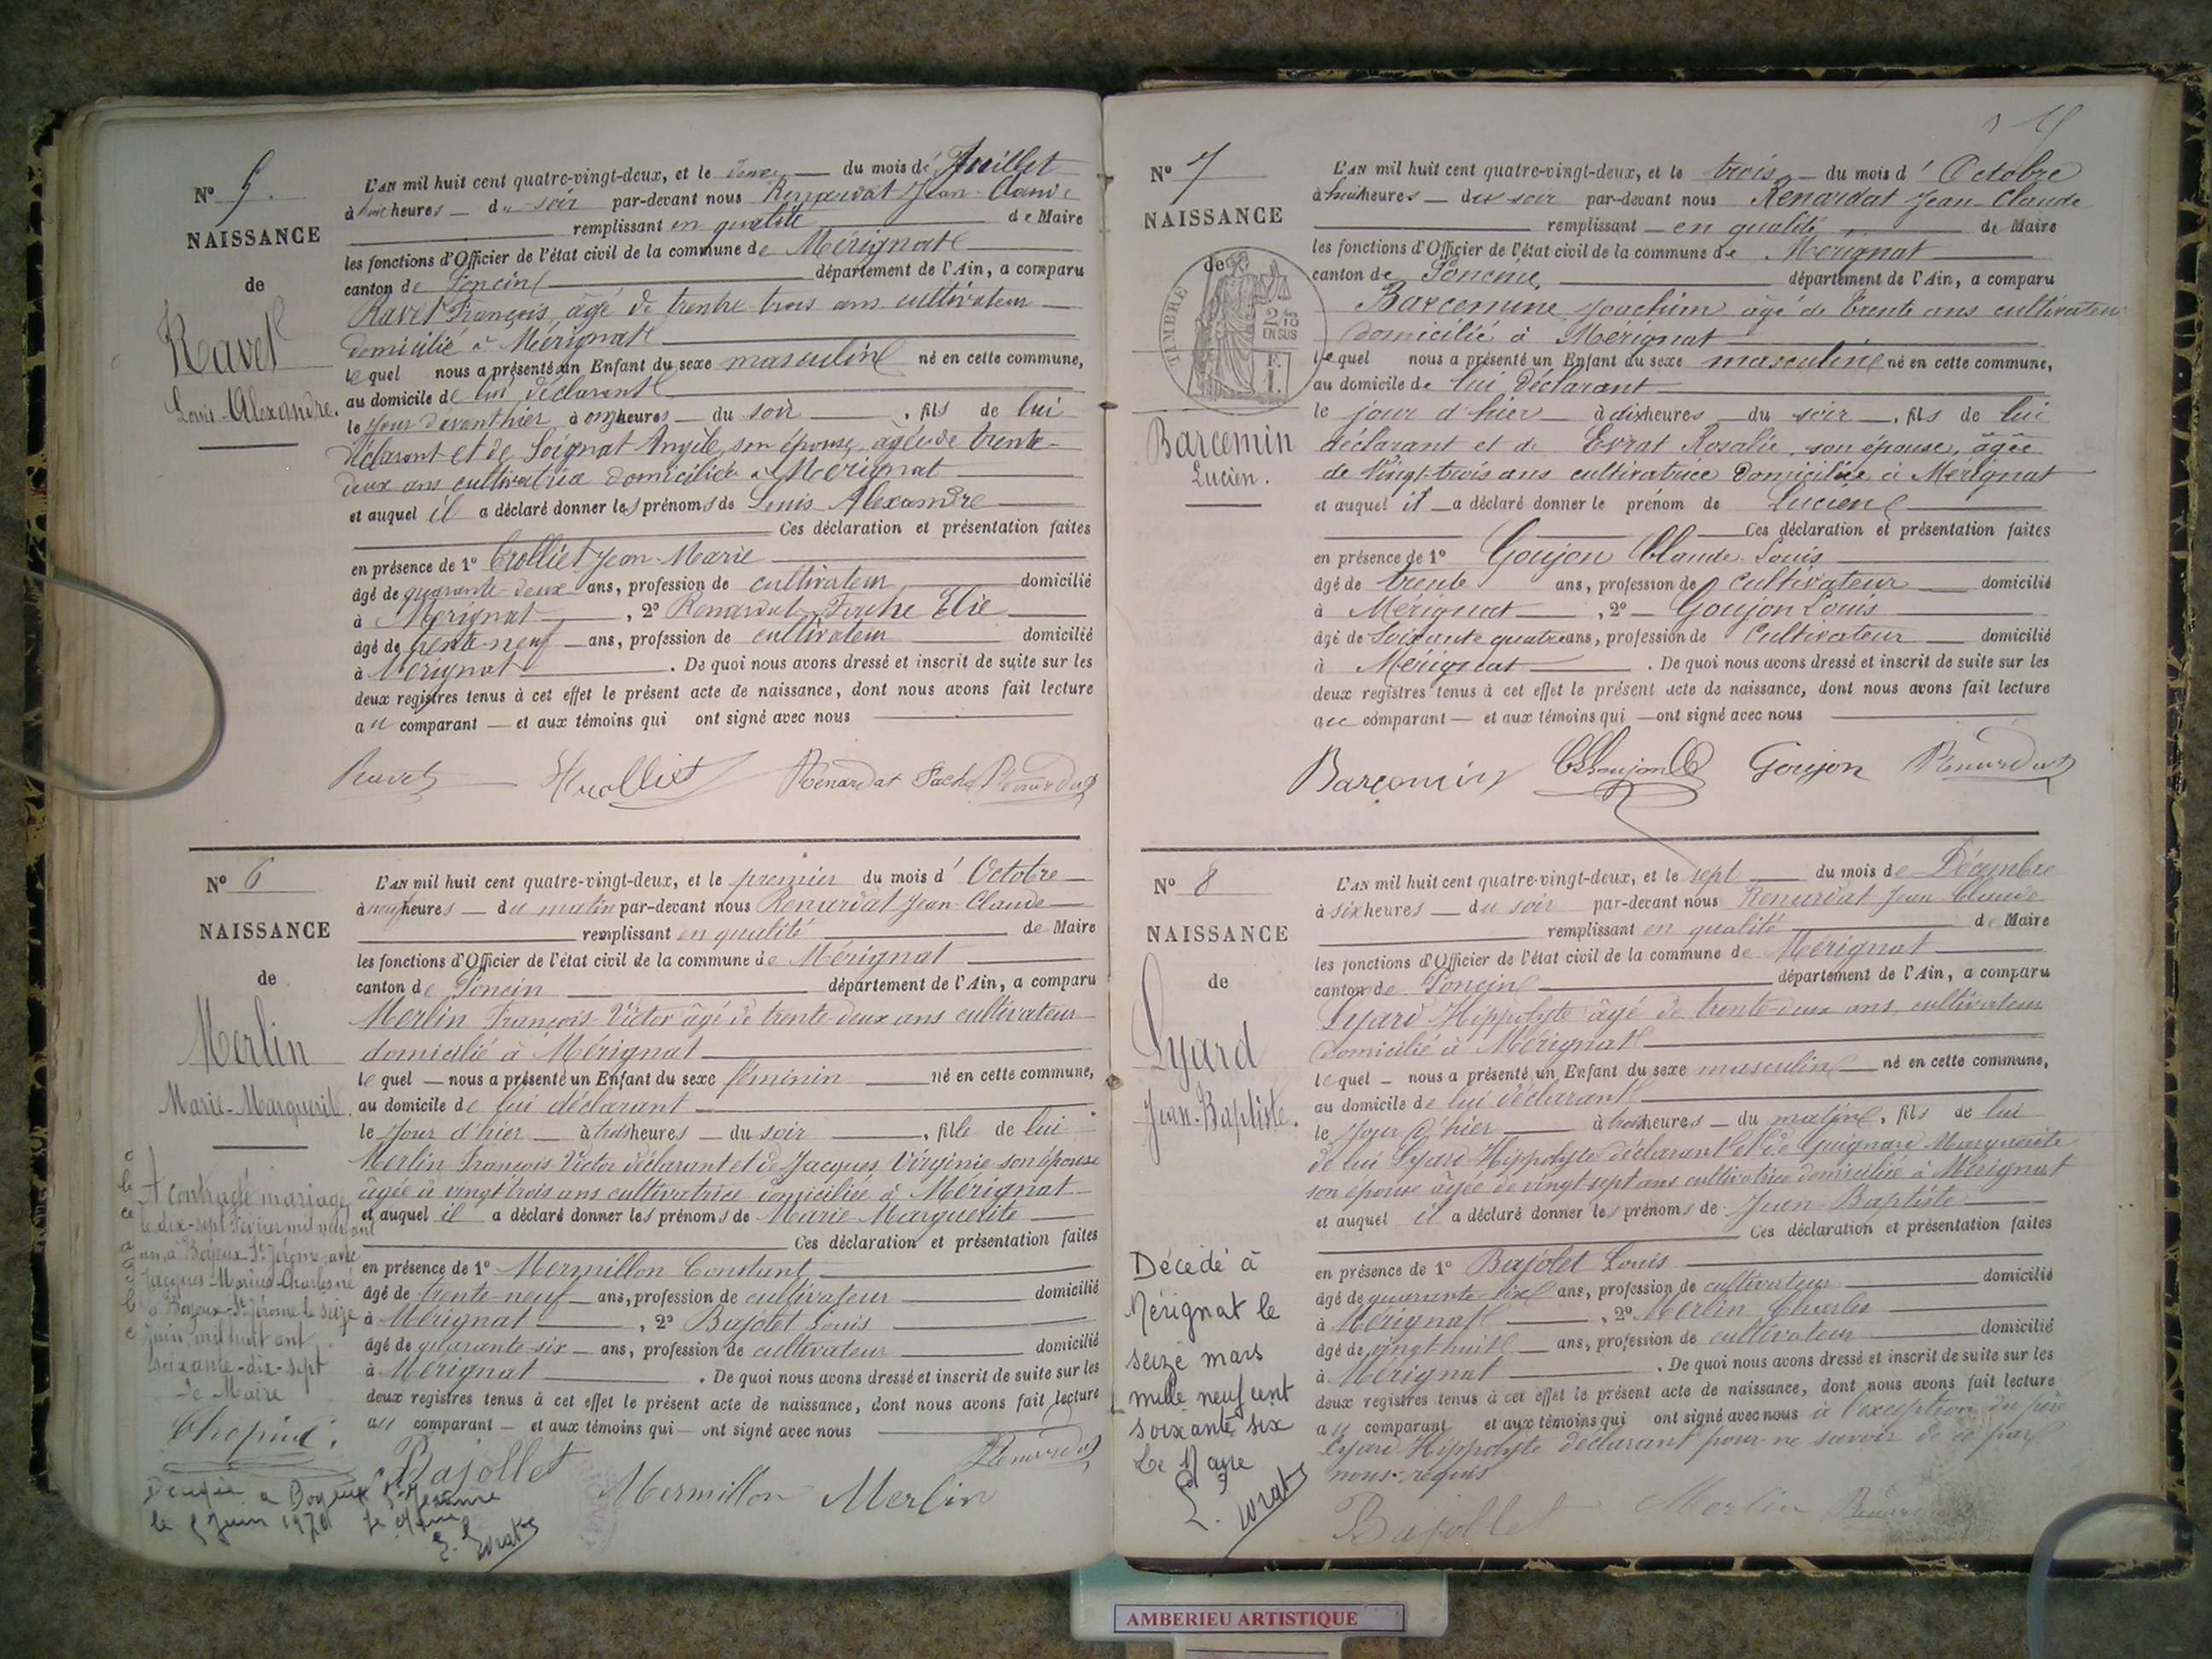 N° 5.
NAISSANCE
de
Ravet
Louis-Alexandre.
L'AN mil huit cent quatre-vingt-deux, et le du mois de Juillet
à heures du soir par-devant nous Renardat Jean-Claude
remplissant en qualité de Maire
les fonctions d'Officier de l'état civil de la commune de Mérignat
canton de Poncin département de l'Ain, a comparu
Ravet François, âgé de trente-trois ans cultivateur
domicilié à Mérignat
lequel nous a présenté un Enfant du sexe masculin né en cette commune,
au domicile de lui déclarant
le jour d'avant hier, à onze heures du soir, fils de lui
déclarant et de Soignat Angèle, son épouse, âgée de trente-
deux ans cultivatrice domiciliée à Mérignat
et auquel il a déclaré donner les prénoms de Louis Alexandre
Ces déclaration et présentation faites
en présence de 1° Crolliet Jean-Marie
âgé de quarante-deux ans, profession de cultivateur domicilié
à Mérignat, 2° Renardat-Fache Elie
âgé de trente-neuf ans, profession de cultivateur domicilié
à Mérignat. De quoi nous avons dressé et inscrit de suite sur les
deux registres tenus à cet effet le présent acte de naissance, dont nous avons fait lecture
au comparant et aux témoins qui ont signé avec nous
Ravet Crolliet Renardat Fache Renardat
N° 6
NAISSANCE
de
Merlin
Marie-Marguerite.
A contracté mariage
le dix-sept Février mil neuf cent
un, à Boyeux-St-Jérôme, avec
Jacques Marius Charles né
à Boyeux-St-Jérôme le seize
Juin mil huit cent
soixante-dix-sept
Le Maire
Décédée à Boyeux St Jérôme
le 5 Juin 1970 Le Maire
L'AN mil huit cent quatre-vingt-deux, et le premier du mois d'Octobre
à neuf heures du matin par-devant nous Renardat Jean-Claude
remplissant en qualité de Maire
les fonctions d'Officier de l'état civil de la commune de Mérignat
canton de Poncin département de l'Ain, a comparu
Merlin François-Victor âgé de trente-deux ans cultivateur
domicilié à Mérignat
lequel nous a présenté un Enfant du sexe féminin né en cette commune,
au domicile de lui déclarant
le jour d'hier à trois heures du soir, fille de lui
Merlin François-Victor déclarant et de Jacques Virginie son épouse
âgée de vingt trois ans cultivatrice domiciliée à Mérignat
et auquel il a déclaré donner les prénoms de Marie-Marguerite
Ces déclaration et présentation faites
en présence de 1° Mermillon Constant
âgé de trente-neuf ans, profession de cultivateur domicilié
à Mérignat, 2° Bajolet Louis
âgé de quarante-six ans, profession de cultivateur domicilié
à Mérignat. De quoi nous avons dressé et inscrit de suite sur les
deux registres tenus à cet effet le présent acte de naissance, dont nous avons fait lecture
au comparant et aux témoins qui ont signé avec nous
Renardat
Bajollet Mermillon Merlin
N° 7
NAISSANCE
de
TIMBRE
2/10
EN SUS
Barcemin
Lucien.
L'AN mil huit cent quatre-vingt-deux, et le trois du mois d'Octobre
à huit heures du soir par-devant nous Renardat Jean-Claude
remplissant en qualité de Maire
les fonctions d'Officier de l'état civil de la commune de Mérignat
canton de Poncin, département de l'Ain, a comparu
Barcemine Joachim âgé de trente ans cultivateur
domicilié à Mérignat
lequel nous a présenté un Enfant du sexe masculin né en cette commune,
au domicile de lui déclarant
le jour d'hier à dix heures du soir, fils de lui
déclarant et de Evrat Rosalie, son épouse, âgée
de Vingt-trois ans cultivatrice domiciliée à Mérignat
et auquel il a déclaré donner le prénom de Lucien
Ces déclaration et présentation faites
en présence de 1° Goujon Claude-Louis
âgé de trente ans, profession de Cultivateur domicilié
à Mérignat, 2° Goujon Louis
âgé de soixante quatre ans, profession de Cultivateur domicilié
à Mérignat. De quoi nous avons dressé et inscrit de suite sur les
deux registres tenus à cet effet le présent acte de naissance, dont nous avons fait lecture
au comparant et aux témoins qui ont signé avec nous
Barcemin CLGoujon Goujon Renardat
N° 8
NAISSANCE
de
Lyard
Jean-Baptiste.
Décédé à
Mérignat le
seize mars
mille neuf cent
soixante six
Le Maire
L'AN mil huit cent quatre-vingt-deux, et le sept du mois de Décembre
à six heures du soir par-devant nous Renardat Jean Claude
remplissant en qualité de Maire
les fonctions d'Officier de l'état civil de la commune de Mérignat
canton de Poncin département de l'Ain, a comparu
Lyard Hippolyte âgé de trente-deux ans, cultivateur
domicilié à Mérignat
lequel nous a présenté un Enfant du sexe masculin né en cette commune,
au domicile de lui déclarant
le jour d'hier à trois heures du matin, fils de lui
de lui Lyard Hippolyte déclarant et de Guignard Marguerite
son épouse âgée de vingt sept ans cultivatrice domiciliée à Mérignat
et auquel il a déclaré donner les prénoms de Jean Baptiste
Ces déclaration et présentation faites
en présence de 1° Bajolet Louis
âgé de quarante six ans, profession de cultivateur domicilié
à Mérignat, 2° Merlin Charles
âgé de vingt huit ans, profession de cultivateur domicilié
à Mérignat. De quoi nous avons dressé et inscrit de suite sur les
deux registres tenus à cet effet le présent acte de naissance, dont nous avons fait lecture
au comparant et aux témoins qui ont signé avec nous à l'exception du père
Lyard Hippolyte déclarant pour ne savoir de ce par
nous requis
Bajollet Merlin Renardat
AMBERIEU ARTISTIQUE